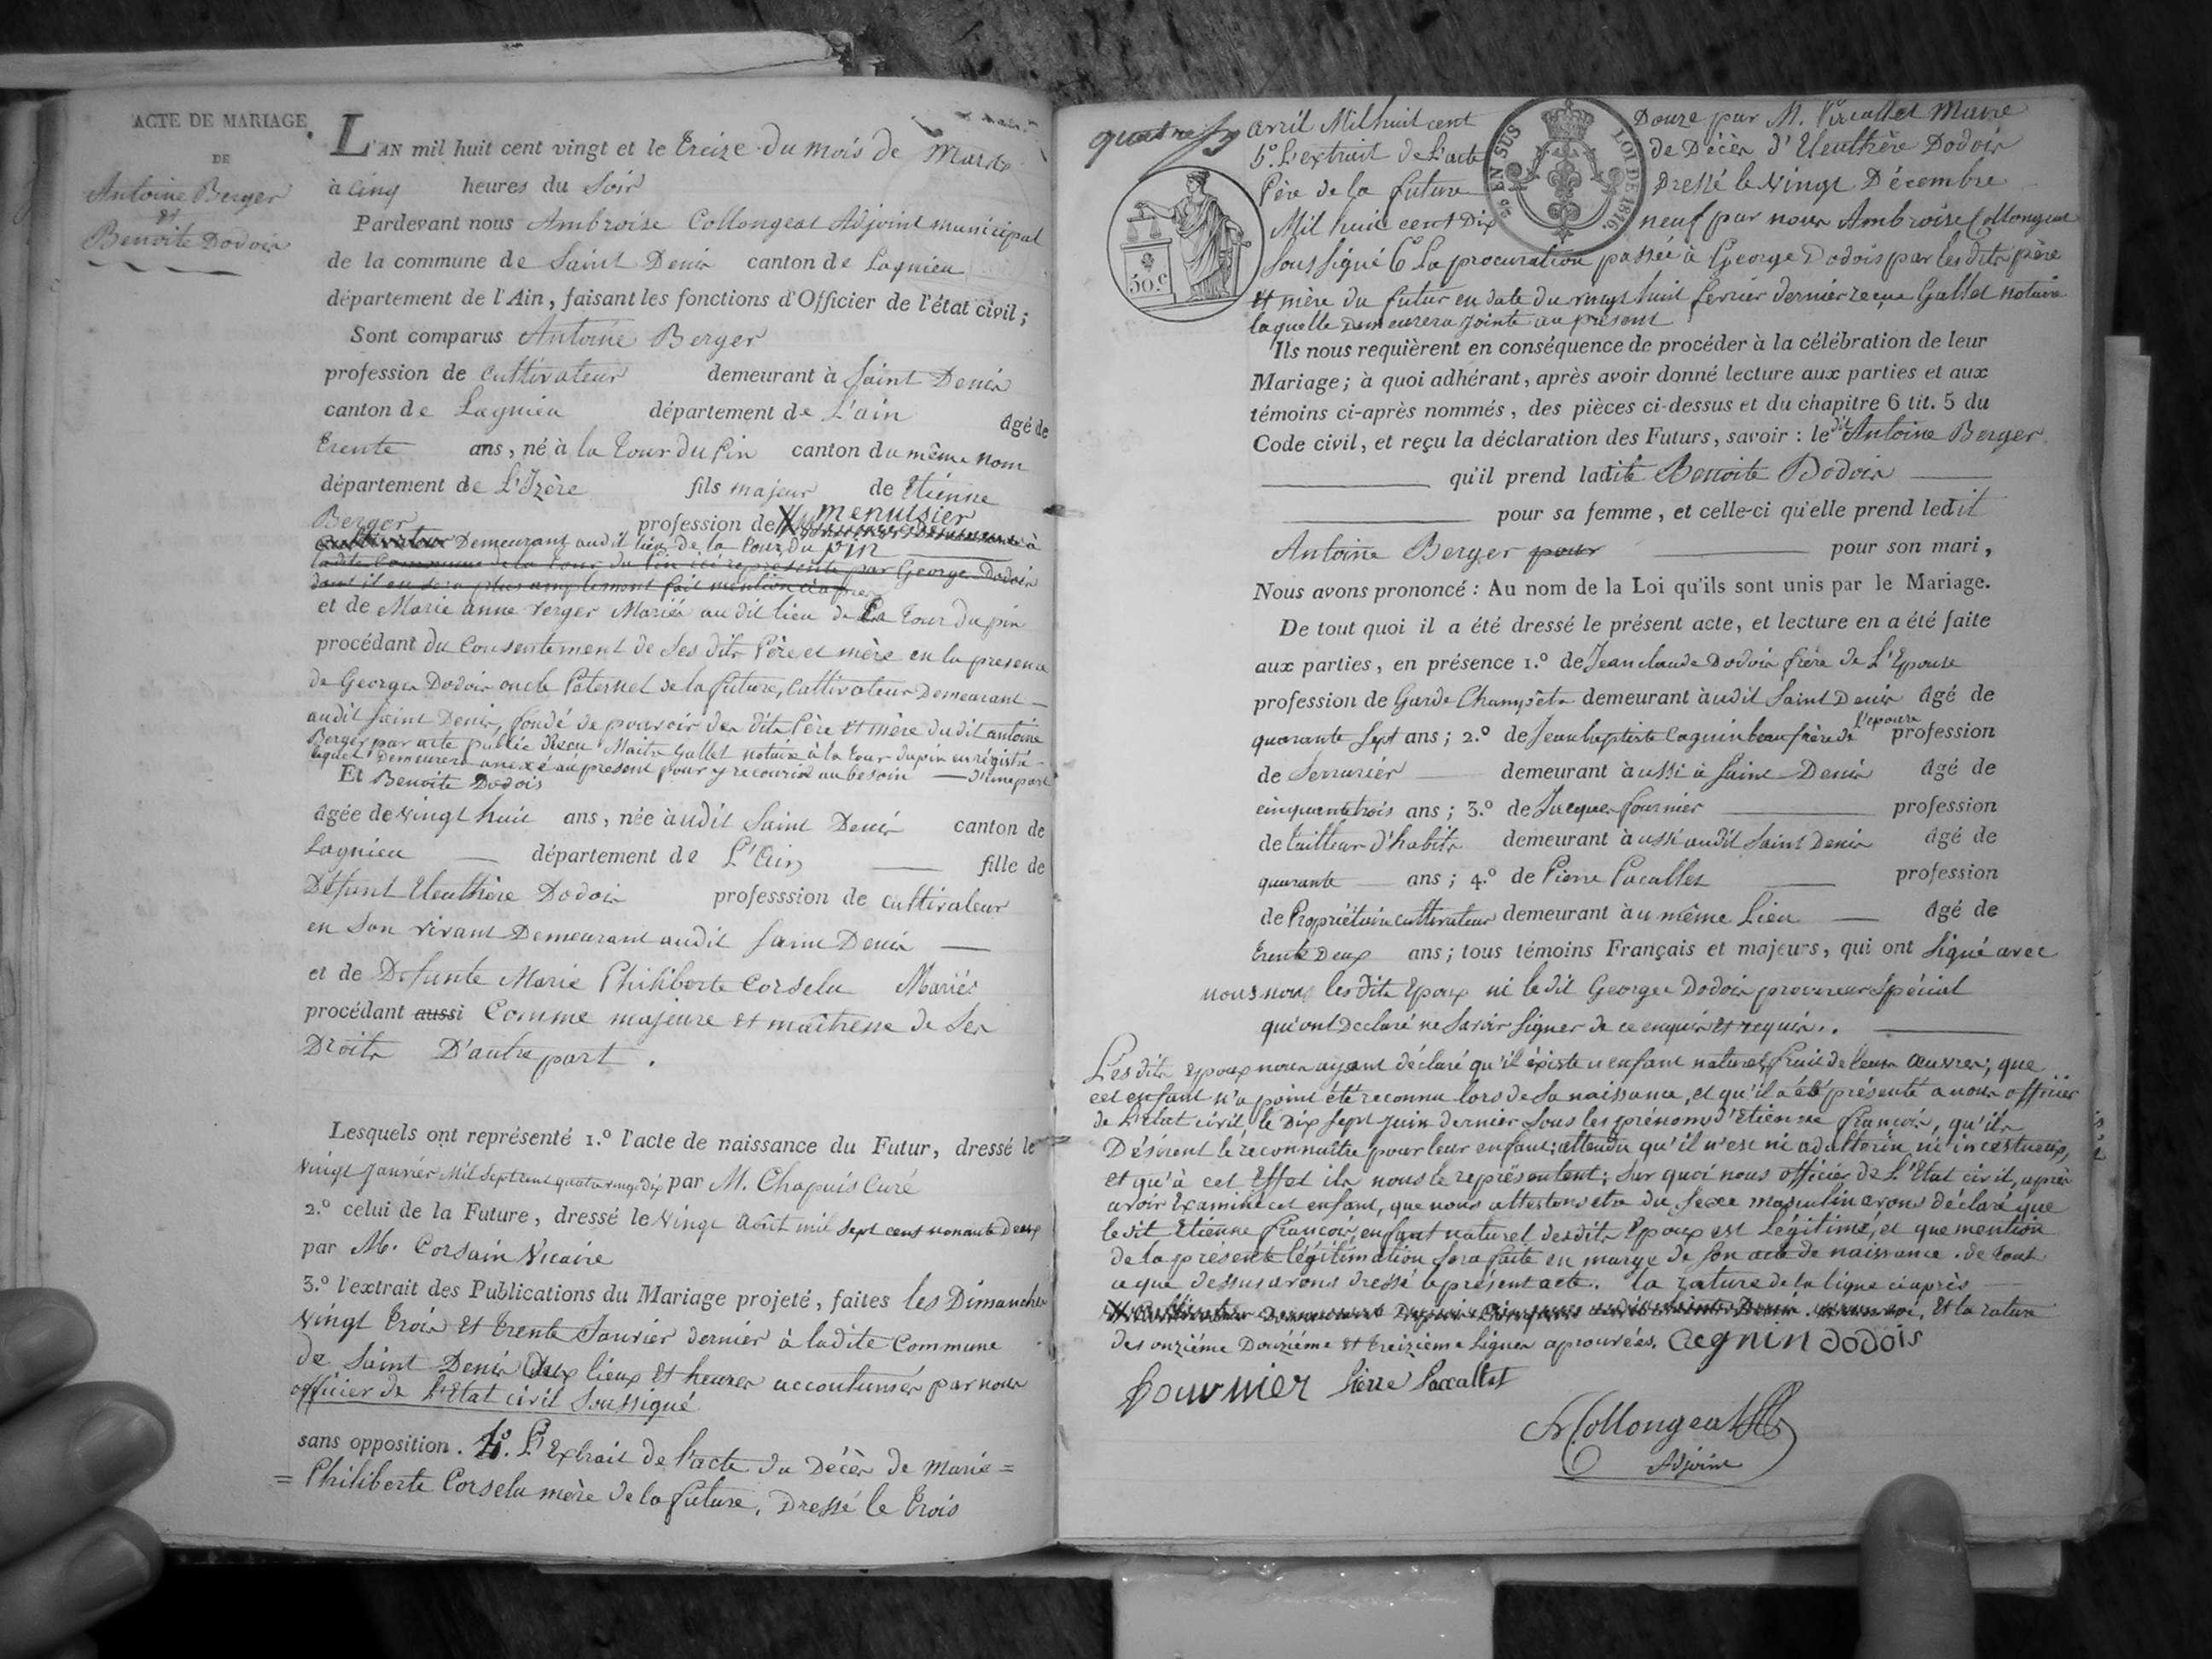 ACTE DE MARIAGE
DE
Antoine Berger
et
Benoite Dodois
L'AN mil huit cent vingt et le treize du mois de Mars
à Cinq heures du Soir
Pardevant nous Ambroise Collongeat Adjoint municipal
de la commune de Saint Denis canton de Lagnieu
département de l'Ain, faisant les fonctions d'Officier de l'état civil ;
Sont comparus Antoine Berger
profession de Cultivateur demeurant à Saint Denis
canton de Lagnieu département de L'ain âgé de
trente ans, né à la tour du pin canton du même nom
département de L'Izère fils majeur de Etienne
Berger profession de menuisier
Cultivateur Demeurant audit lieu de la tour du pin
ladite Commune de la tour du Pin ici représenté par George Dodois
dont il en sera plus amplement fait mention ci après
et de Marie anne verger Mariés audit lieu de La tour du pin
procédant du Consentement de Ses dits Père et mère en la presence
de Georges Dodois oncle Paternel de la future, Cultivateur Demeurant
audit Saint Denis, fondé de pouvoir des dits Père et mère dudit antoine
Berger par acte public Recu Maitre Gallet notaire à la tour dupin enrégistré
lequel Demeurera anexé au present pour y recourir au besoin — D'une part
Et Benoite Dodois
âgée de vingt huit ans, née àudit Saint Denis canton de
Lagnieu département de L'Ain fille de
Défunt Eleuthère Dodois professsion de cultivateur
en Son vivant Demeurant audit Saint Denis
et de Defunte Marie Philiberte Corselu Mariés
procédant aussi Comme majeure et maîtresse de Ses
Droits D'autre part.
Lesquels ont représenté 1.º l'acte de naissance du Futur, dressé le
vingt Janvier Mil Sept cent quatre vingt dix par M. Chapuis Curé
2.º celui de la Future, dressé le vingt Août mil sept cent nonante Deux
par M. Corsain Vicaire
3.º l'extrait des Publications du Mariage projeté, faites les Dimanches
vingt trois et trente Janvier dernier à ladite Commune
de Saint Denis aux lieux et heures accoutumées par nous
officier de l'Etat civil Soussigné
sans opposition. 4º. L'Extrait de l'acte du Décès de Marie =
= Philiberte Corselu mère de la future, Dressé le trois
quatre
avril Mil huit cent Douze par M. Maire
5º. L'extrait de L'acte de Décès d'Eleuthère Dodois
Père de la future Dressé le vingt Décembre
Mil huit cent Dix neuf par nous Ambroise Collongeat
Soussigné 6º La procuration passée à George Dodois par les dits père
et mère du futur en date du vingt huit fevrier dernier reçue Gallet notaire
laquelle Demeurera jointe au présent
50.C
EN SUS
LOI DE 1816.
Ils nous requièrent en conséquence de procéder à la célébration de leur
Mariage ; à quoi adhérant, après avoir donné lecture aux parties et aux
témoins ci-après nommés, des pièces ci-dessus et du chapitre 6 tit. 5 du
Code civil, et reçu la déclaration des Futurs, savoir : le dit Antoine Berger
qu'il prend ladite Benoite Dodois
pour sa femme, et celle-ci qu'elle prend ledit
Antoine Berger pour pour son mari,
Nous avons prononcé : Au nom de la Loi qu'ils sont unis par le Mariage.
De tout quoi il a été dressé le présent acte, et lecture en a été faite
aux parties, en présence 1.º de Jean claude Dodois frère de L'Epouse
profession de Garde Champêtre demeurant àudit Saint Denis âgé de
quarante Sept ans ; 2.º de Jean baptiste Cagnin beau frère de l'epouse profession
de Serrurier demeurant àussi à Saint Denis âgé de
cinquante trois ans ; 3.º de Jacques fournier profession
de tailleur d'habits demeurant àussi audit Saint Denis âgé de
quarante ans ; 4.º de Pierre Pacallet profession
de Propriétaire cultivateur demeurant àu même Lieu âgé de
trente Deux ans ; tous témoins Français et majeurs, qui ont Signé avec
nous non les dits Epoux ni le dit George Dodois procureur Spécial
qui ont Declaré ne Savoir Signer de ce enquis et requis.
Les dits epoux nous ayant déclaré qu'il existe un enfant naturel, fruit de leurs œuvres, que
cet enfant n'a point été reconnu lors de Sa naissance, et qu'il a été présenté a nous officier
de L'Etat civil, le Dix sept Juin dernier Sous les prénoms d'Etienne François, qu'ils
Désirent le reconnuitre pour leur enfant, attendu qu'il n'est ni adultérin ni incestueux,
et qu'à cet Effet ils nous le représentent ; Sur quoi nous officier de L'Etat civil, après
avoir Examiné cet enfant, que nous attestons etre du Sexe masculin avons déclaré que
le dit Etienne François, enfant naturel desdits Epoux est Légitimé, et que mention
de la présente légitimation Sera faite en marge de Son acte de naissance. de tout
ce que dessus avons dressé le présent acte. la rature de la ligne ci après
Et la rature
des onzième Douzième et treizième lignes aprouvées. Cagnin dodois
fournier Pierre Paccallet
Collongeat
Adjoint